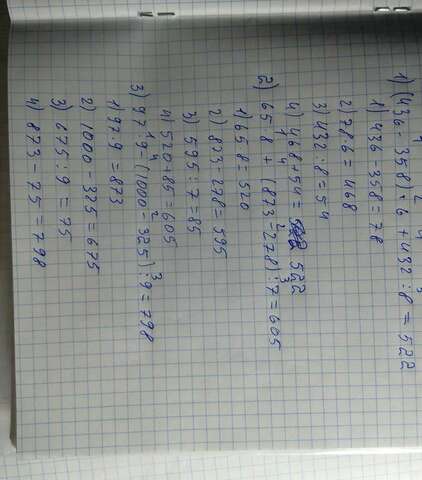 1 2 4 3
1) (436 - 358) · 6 + 432 : 8 = 522
1) 436 - 358 = 78
2) 78·6 = 468
3) 432 : 8 = 54
4) 468 + 54 = 522
1 4 2 3
2) 65·8 + (873 - 278) : 7 = 605
1) 65·8 = 520
2) 873 - 278 = 595
3) 595 : 7 = 85
4) 520 + 85 = 605
1 4 2 3
3) 97·9 - (1000 - 325) : 9 = 798
1) 97·9 = 873
2) 1000 - 325 = 675
3) 675 : 9 = 75
4) 873 - 75 = 798